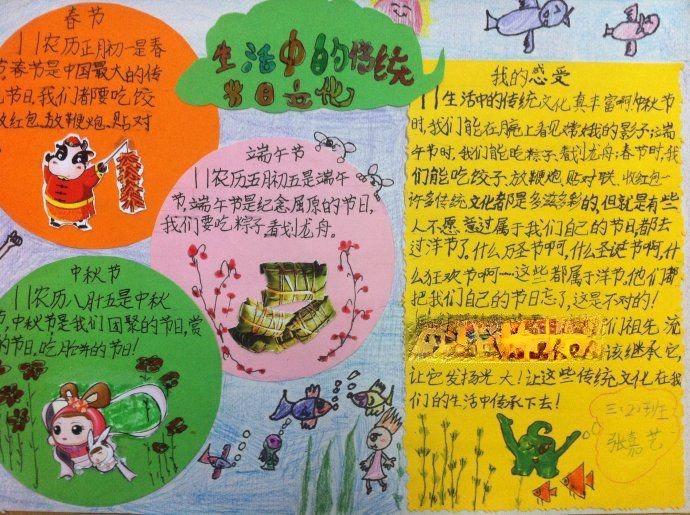 生活中的传统
节日文化
春节
农历正月初一是春
节春节是中国最大的传
节日我们都要吃饺
收红包、放鞭炮、贴对
端午节
农历五月初五是端午
节,端午节是纪念屈原的节日,
我们要吃粽子、看划龙舟。
中秋节
农历八月十五是中秋
节,中秋节是我们团聚的节日,赏
的节日,吃月饼的节日!
我的感受
生活中的传统文化真丰富啊!中秋节
时,我们能在月亮上看见嫦娥的影子;端
午节时,我们能吃粽子、看划龙舟;春节时,我
们能吃饺子、放鞭炮、贴对联、收红包……
许多传统文化都是多滋多彩的,但就是有些
人不愿意过属于我们自己的节日,都去
过洋节了。什么万圣节啊,什么圣诞节啊,什
么狂欢节啊……这些都属于洋节。他们都
把我们自己的节日忘了,这是不对的!
们祖先流
该继承它,
让它发扬光大!让这些传统文化在我
们的生活中传承下去!
三·20班
张嘉艺